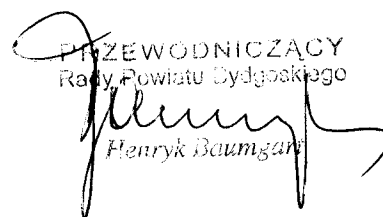 PRZEWODNICZĄCY
Rady Powiatu Bydgoskiego
Henryk Baumgart